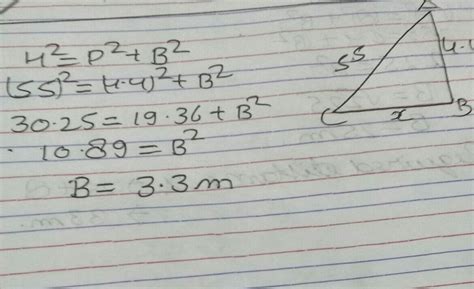 H²= P²+ B²
(5.5)²= (4.4)²+ B²
30.25 = 19.36 + B²
10.89 = B²
B = 3.3m
A
5.5
4.4
C
x
B